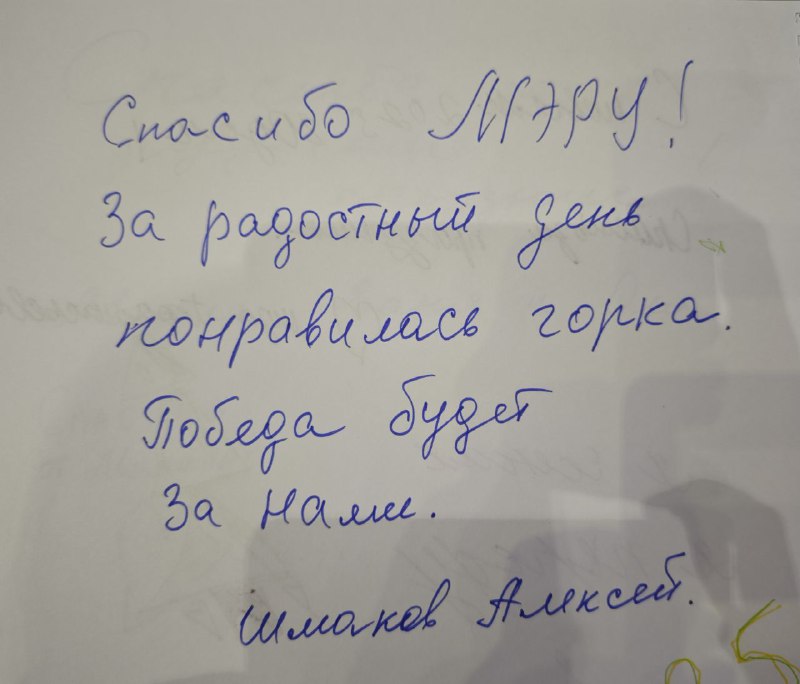 Спасибо МЭРУ!
За радостный день
понравилась горка.
Победа будет
За нами.
Шмаков Алексей.